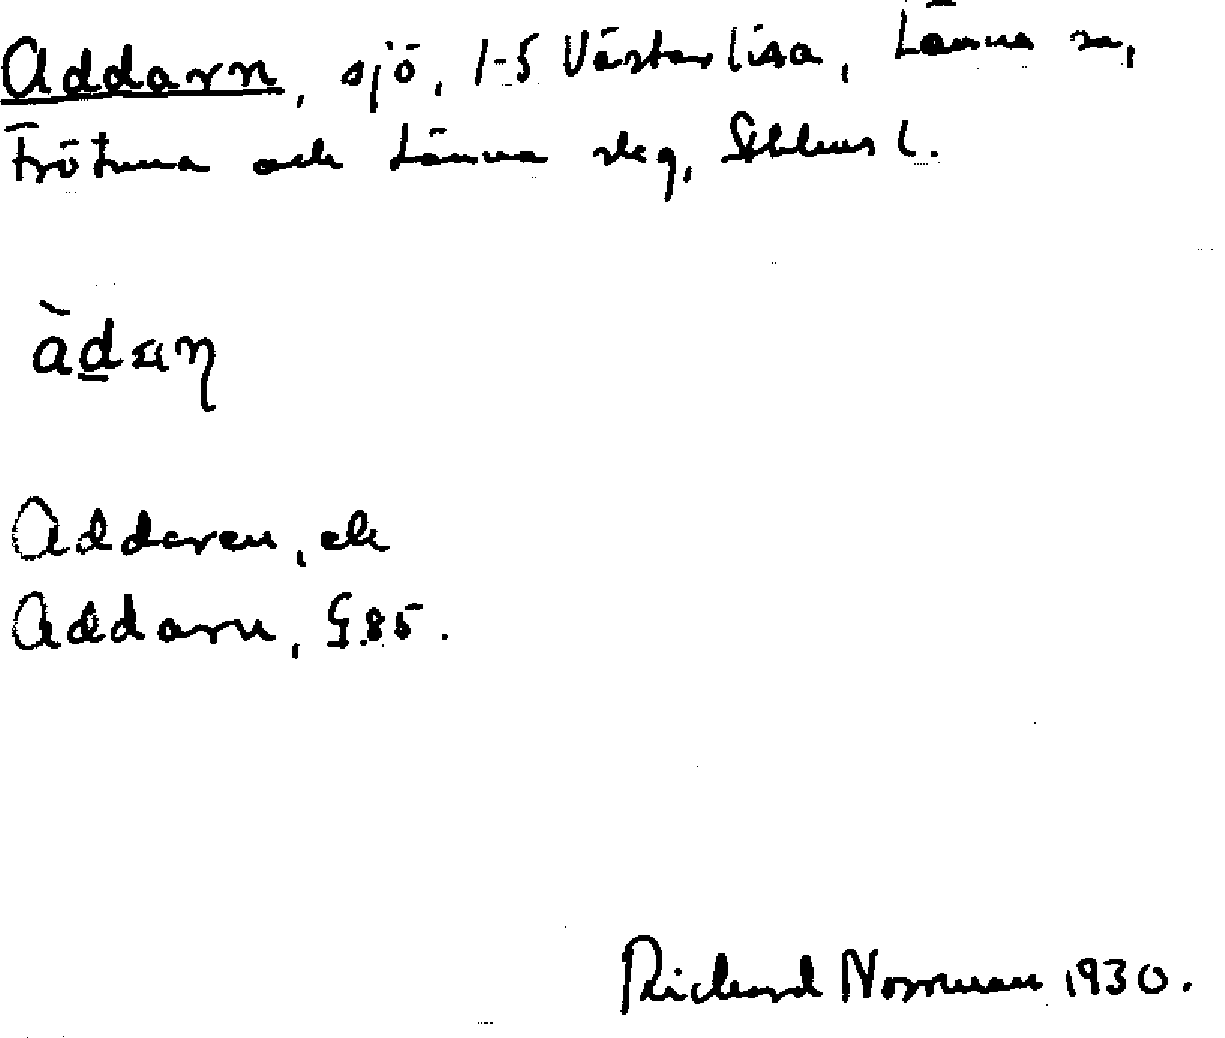 Addarn, sjö, 1-5 Västerlisa, Länna sn,
Frötuna och Länna skg, Sthlms l.
àdaꞃ
Addaren, ek
Addarn, G.85.
Richard Norrman 1930.